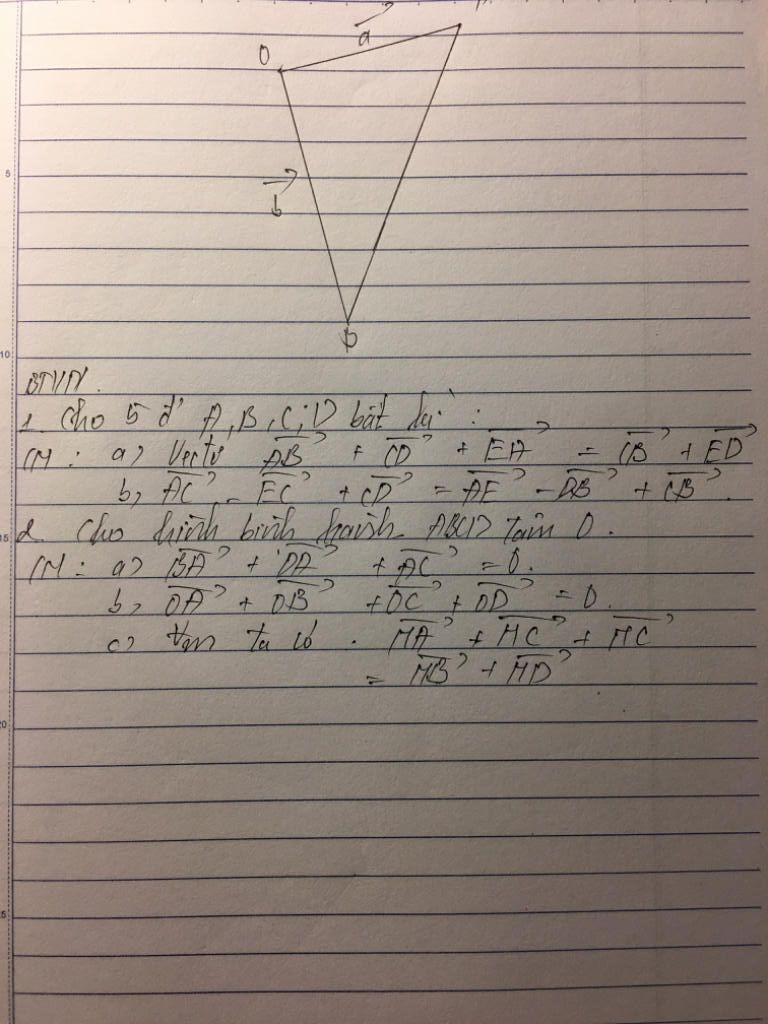 a
O
b
B
BTVN.
1. Cho 5 đ' A, B, C, D bất kì :
CM : a) Vectơ AB + CD + EA = CB + ED
b, AC - EC + CD = AE - DB + CB.
2. Cho hình bình hành ABCD tâm O.
CM : a) BA + DA + AC = 0.
b, OA + OB + OC + OD = 0.
c) ta có . MA + MC + MC
= MB + MD
5
10
15
20